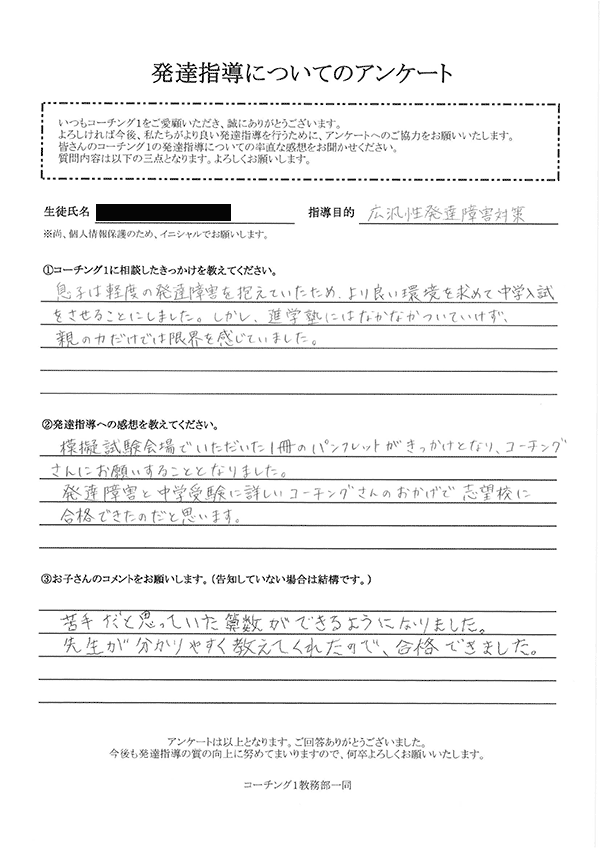 発達指導についてのアンケート
いつもコーチング1をご愛顧いただき、誠にありがとうございます。
よろしければ今後、私たちがより良い発達指導を行うために、アンケートへのご協力をお願いいたします。
皆さんのコーチング1の発達指導についての率直な感想をお聞かせください。
質問内容は以下の三点となります。よろしくお願いします。
生徒氏名
指導目的 広汎性発達障害対策
※尚、個人情報保護のため、イニシャルでお願いします。
①コーチング1に相談したきっかけを教えてください。
息子は軽度の発達障害を抱えていたため、より良い環境を求めて中学入試
をさせることにしました。しかし、進学塾にはなかなかついていけず、
親の力だけでは限界を感じていました。
②発達指導への感想を教えてください。
模擬試験会場でいただいた1冊のパンフレットがきっかけとなり、コーチング
さんにお願いすることとなりました。
発達障害と中学受験に詳しいコーチングさんのおかげで志望校に
合格できたのだと思います。
③お子さんのコメントをお願いします。(告知していない場合は結構です。)
苦手だと思っていた算数ができるようになりました。
先生が分かりやすく教えてくれたので、合格できました。
アンケートは以上となります。ご回答ありがとうございました。
今後も発達指導の質の向上に努めてまいりますので、何卒よろしくお願いいたします。
コーチング1教務部一同